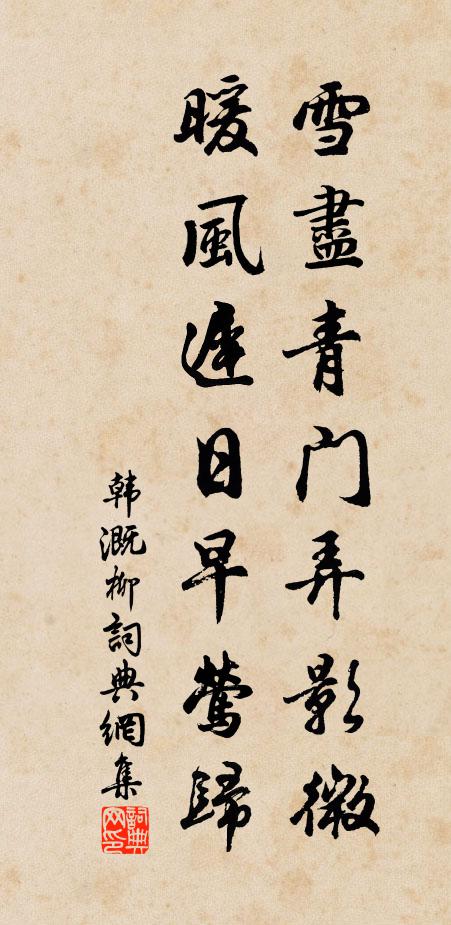 雪盡青门弄影微
暖風遲日早鶯歸
韩溉柳詞典網集
詞典網印